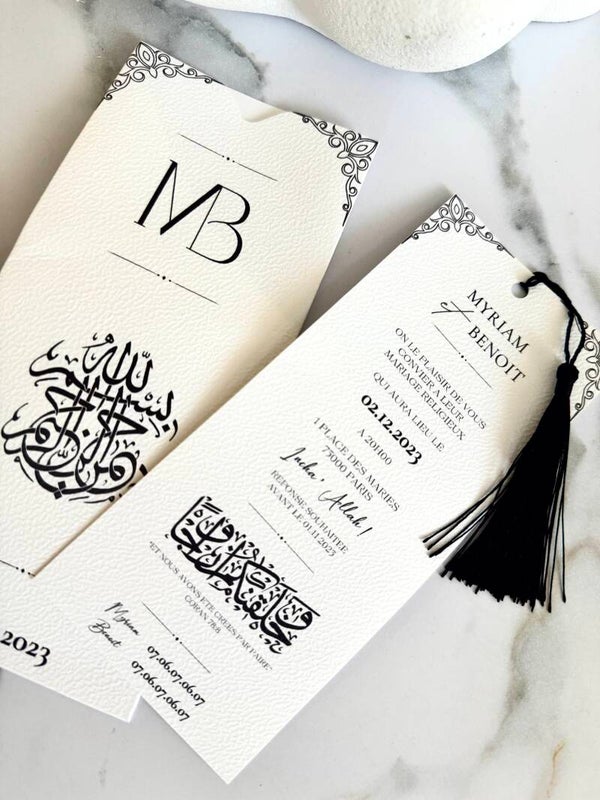 MB
بسم الله الرحمن الرحيم
2023
MYRIAM
et BENOIT
ON LE PLAISIR DE VOUS
CONVIER A LEUR
MARIAGE RELIGIEUX
QUI AURA LIEU LE
02.12.2023
A 20H00
1 PLACE DES MARIES
75000 PARIS
Incha' Allah !
REPONSE SOUHAITEE
AVANT LE 01.11.2023
وخلقناكم أزواجا
"ET NOUS AVONS ETE CREES PAR PAIRE"
CORAN 78:8
Myriam 07.06.07.06.07
Benoit 07.06.07.06.07